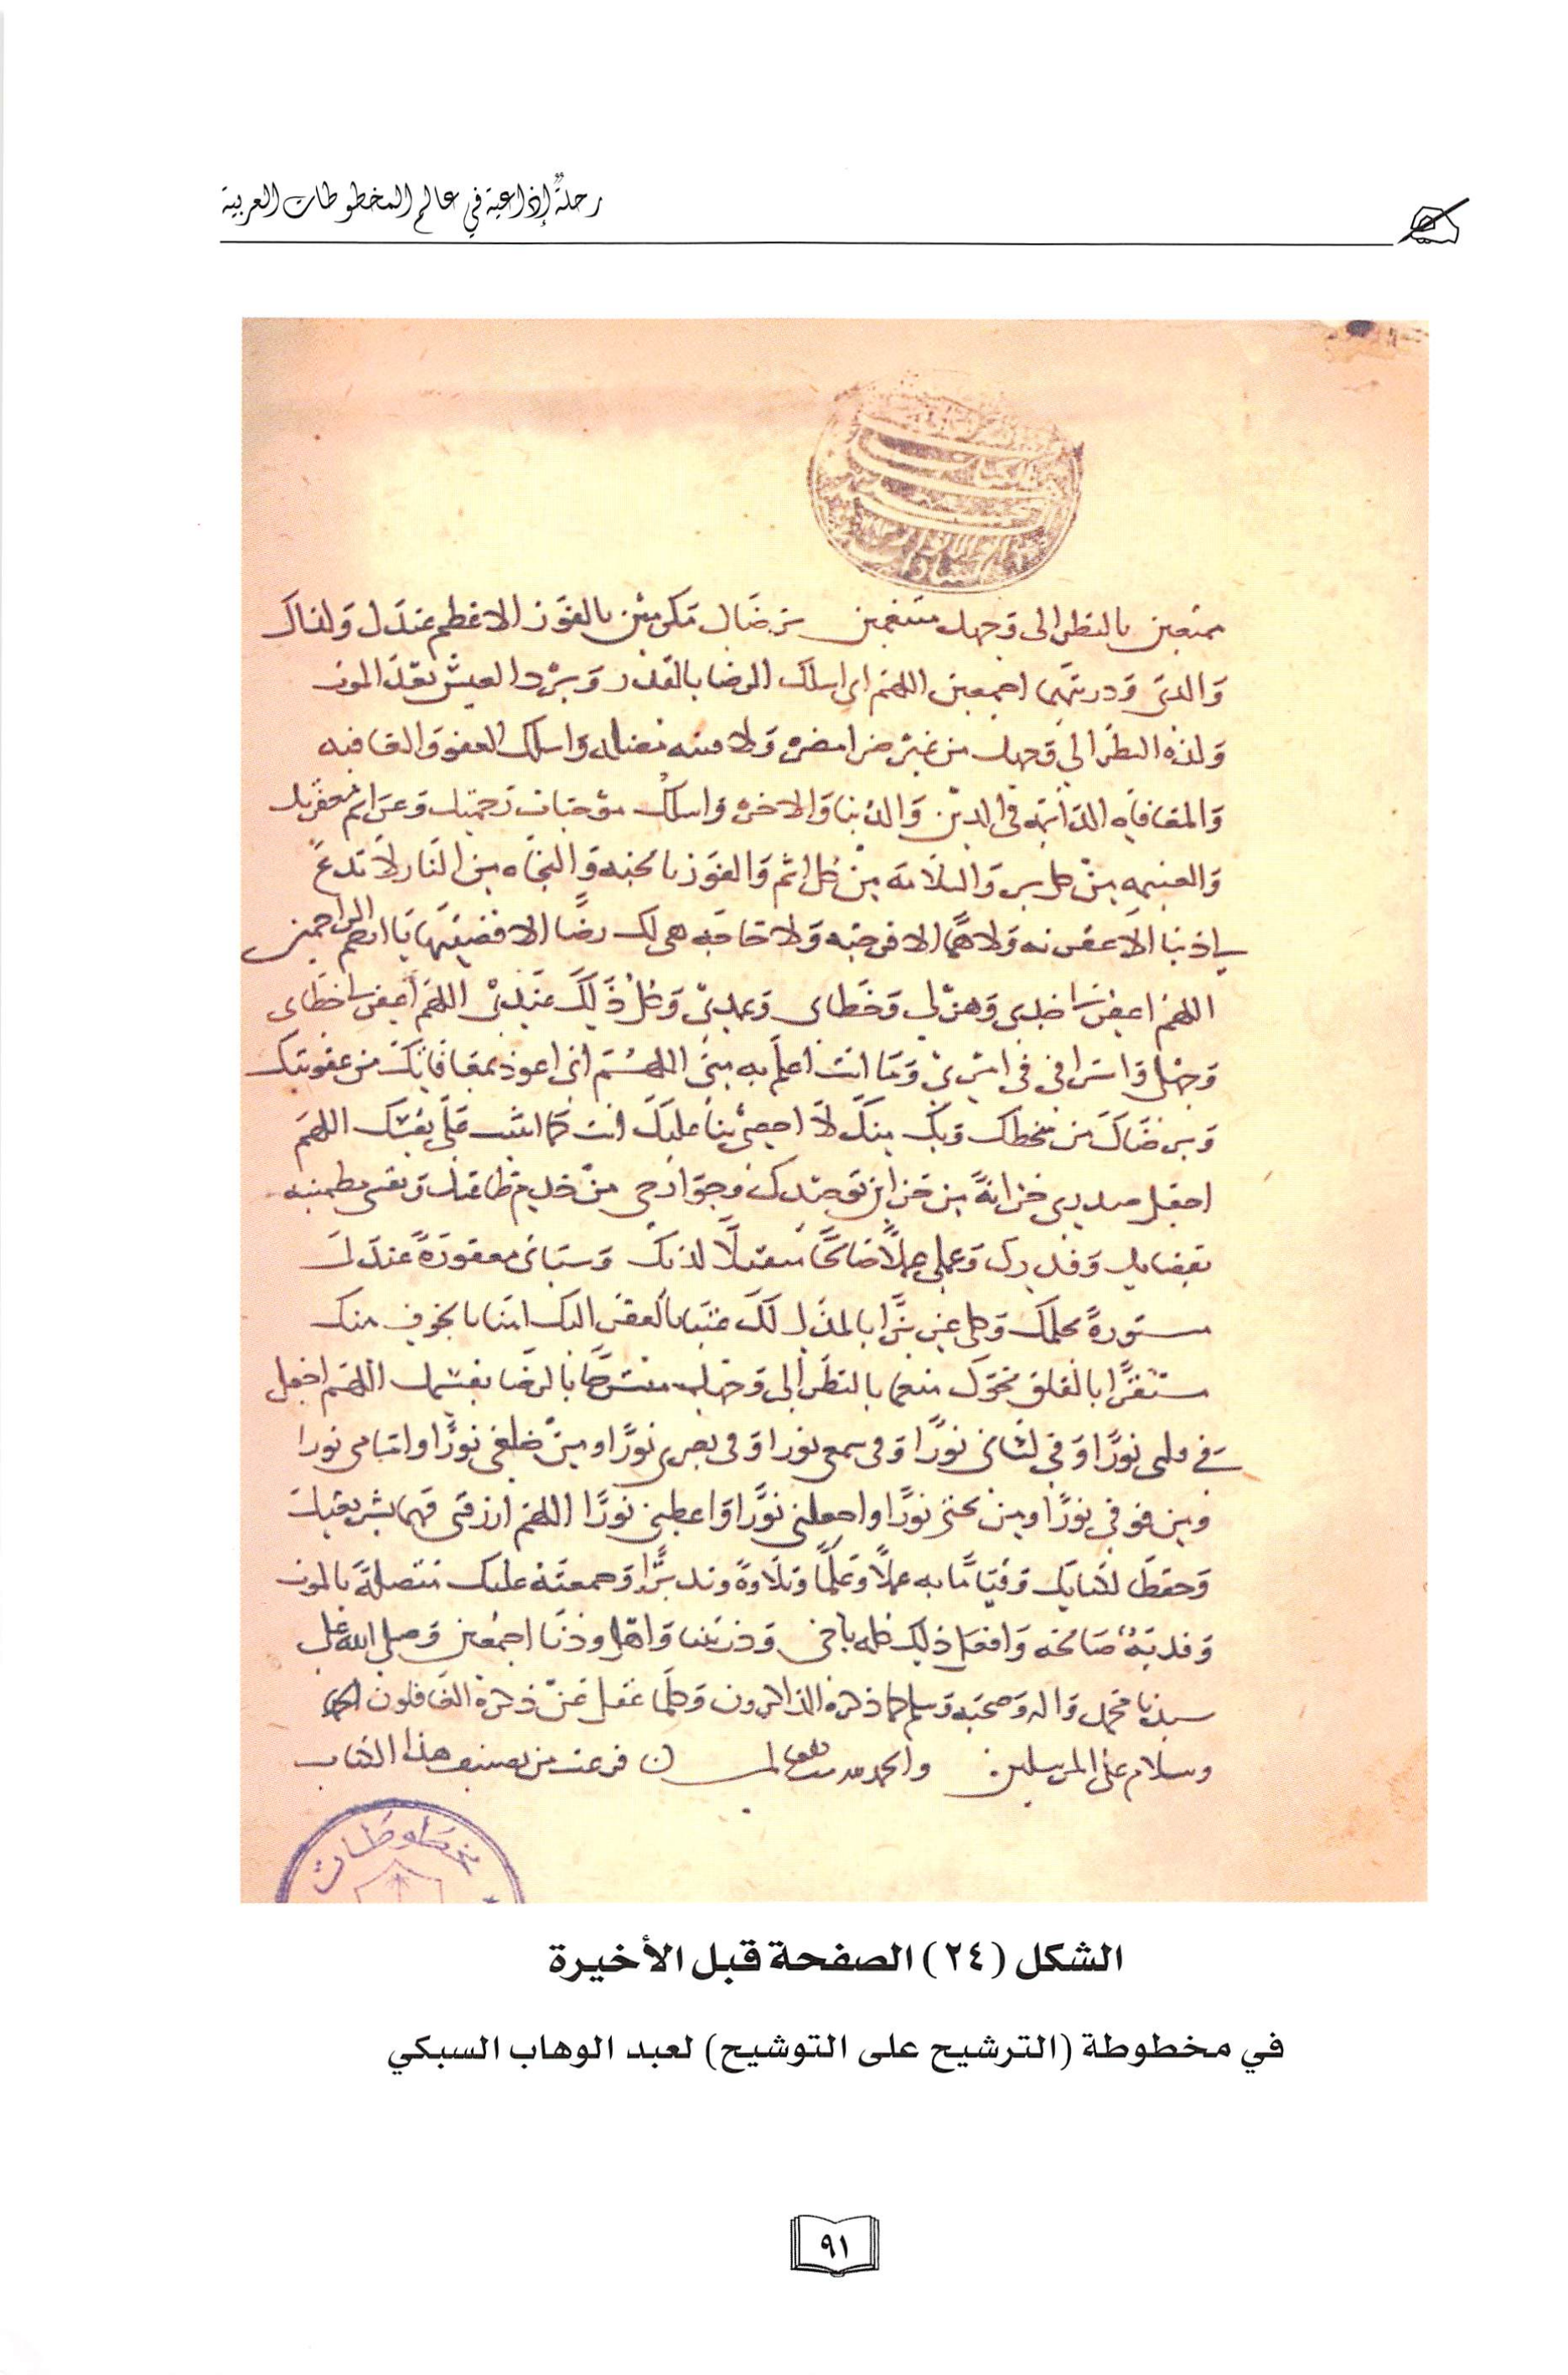 رحلةٌ إذاعية في عالم المخطوطات العربية
ممتعين بالنظر الى وجهك متنعمين برضاك مكرمين بالفوز الاعظم عندك ولقاك
والدي وذريتهما اجمعين اللهم اني اسلك الرضا بالقدر وبرد العيش بعد الموت
ولذه النظر الي وجهك من غير ضرا مضره ولا فتنه مضله واسلك العفو والعافيه
والمعافاه الدائمه في الدين والدنيا والاخره واسلك موجبات رحمتك وعزائم مغفرتك
والغنيمه من كل بر والسلامة من كل اثم والفوز بالجنه والنجاه من النار لا تدع
لي ذنبا الا غفرته ولا همًّا الا فرجته ولا حاجه هي لك رضًا الا قضيتها يا ارحم الراحمين
اللهم اغفر لي جدي وهزلي وخطاي وعمدي وكل ذلك عندي اللهم اغفر لي خطاي
وجهلي واسرافي في امري وما انت اعلم به مني اللهم اني اعوذ بمعافاتك من عقوبتك
وبرضاك من سخطك وبك منك لا احصي ثنا عليك انت كما اثنيت على نفسك اللهم
اجعل صدري خزانةً من خزاين توحيدك وجوارحي من خدم طاعتك ونفسي مطمئنه
بقضايك وقدرك وعملي عملًا صالحًا متقبلًا لديك وسياتي مغفورةً عندك
مستورةً بحلمك
مستقرًا بالقلق نحوك منعما بالنظر الى وجهك منشرحًا بالرضا بقسمك اللهم اجعل
في قلبي نورًا وفي لساني نورًا وفي سمعي نورا وفي بصري نورًا ومن خلفي نورًا وامامي نورا
ومن فوقي نورًا ومن تحتي نورًا واجعلني نورًا واعطني نورًا اللهم ارزقني فهما بشريعتك
وحفظا لكتابك وقياما به عملًا وعلمًا وتلاوةً وتدبرًا وجمعية عليك متصلة بالموت
صالحه وافعل ذلك كله باخي وذريتنا واهل ودنا اجمعين وصلى الله على
سيدنا محمد واله وصحبه وسلم كلما ذكره الذاكرون وكلما غفل عن ذكره الغافلون
وسلام على المرسلين والحمد لله رب العالمين فرغت من تصنيف هذا الكتاب
مخطوطات
الشكل (٢٤) الصفحة قبل الأخيرة
في مخطوطة (الترشيح على التوشيح) لعبد الوهاب السبكي
٩١